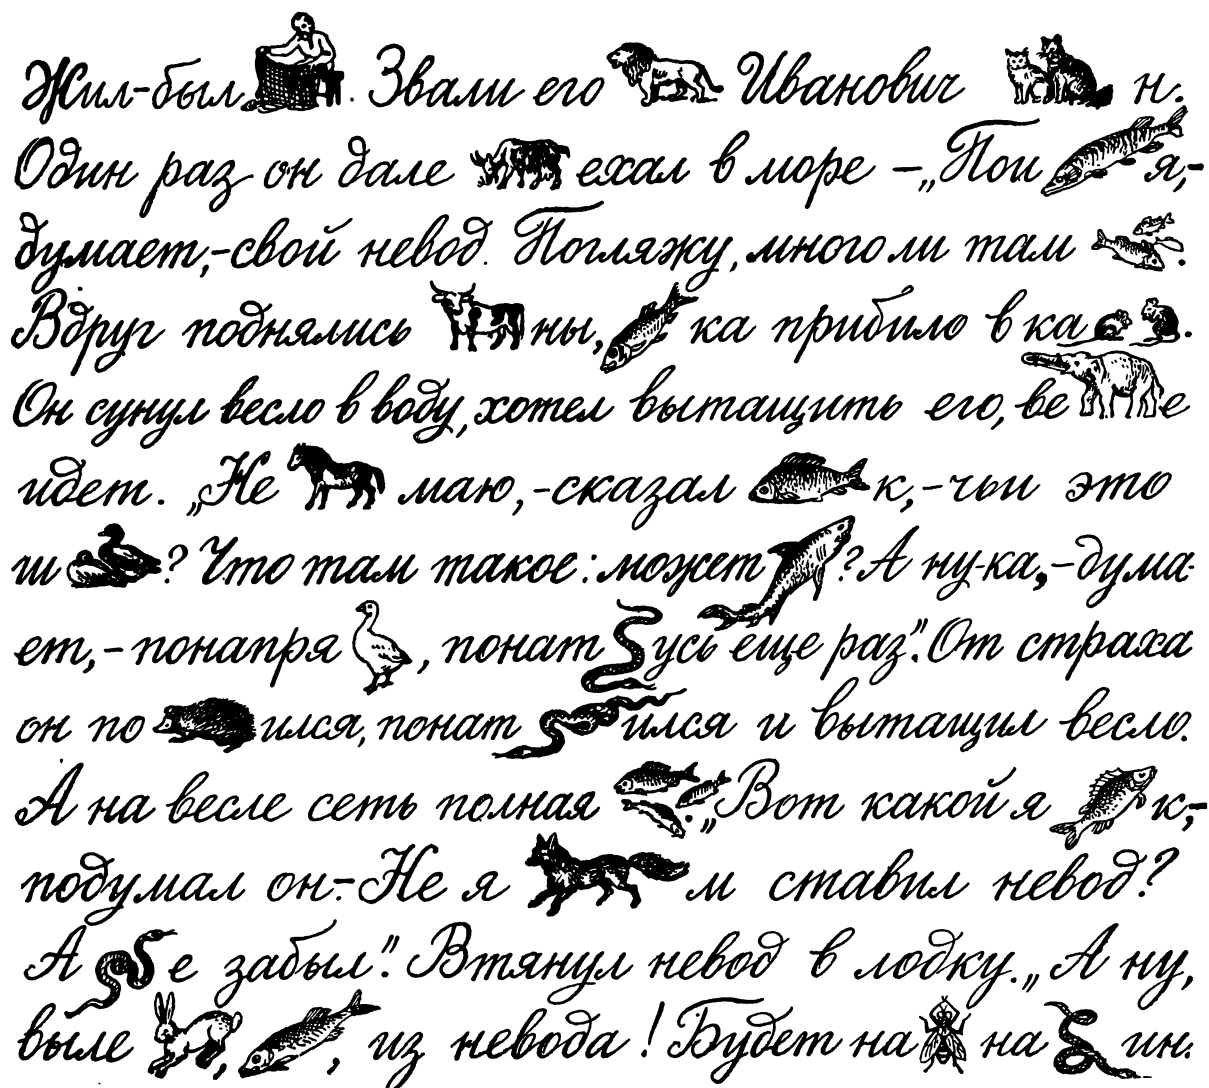 Жил-был . Звали его Иванович н.
Один раз он дале ехал в море –„Пои я,–
думает,–свой невод. Погляжу, много ли там .
Вдруг поднялись ны, ка прибило в ка .
Он сунул весло в воду, хотел вытащить его, ве е
идет. „Не маю,–сказал к,–чьи это
ш ? Что там такое: может ? А ну-ка,–дума-
ет,–понапря , понат усь еще раз". От страха
он по ился, понат ился и вытащил весло.
А на весле сеть полная . „Вот какой я к,–
подумал он.–Не я м ставил невод?
А е забыл". Втянул невод в лодку. „А ну,
выле , , из невода! Будет на на ин.